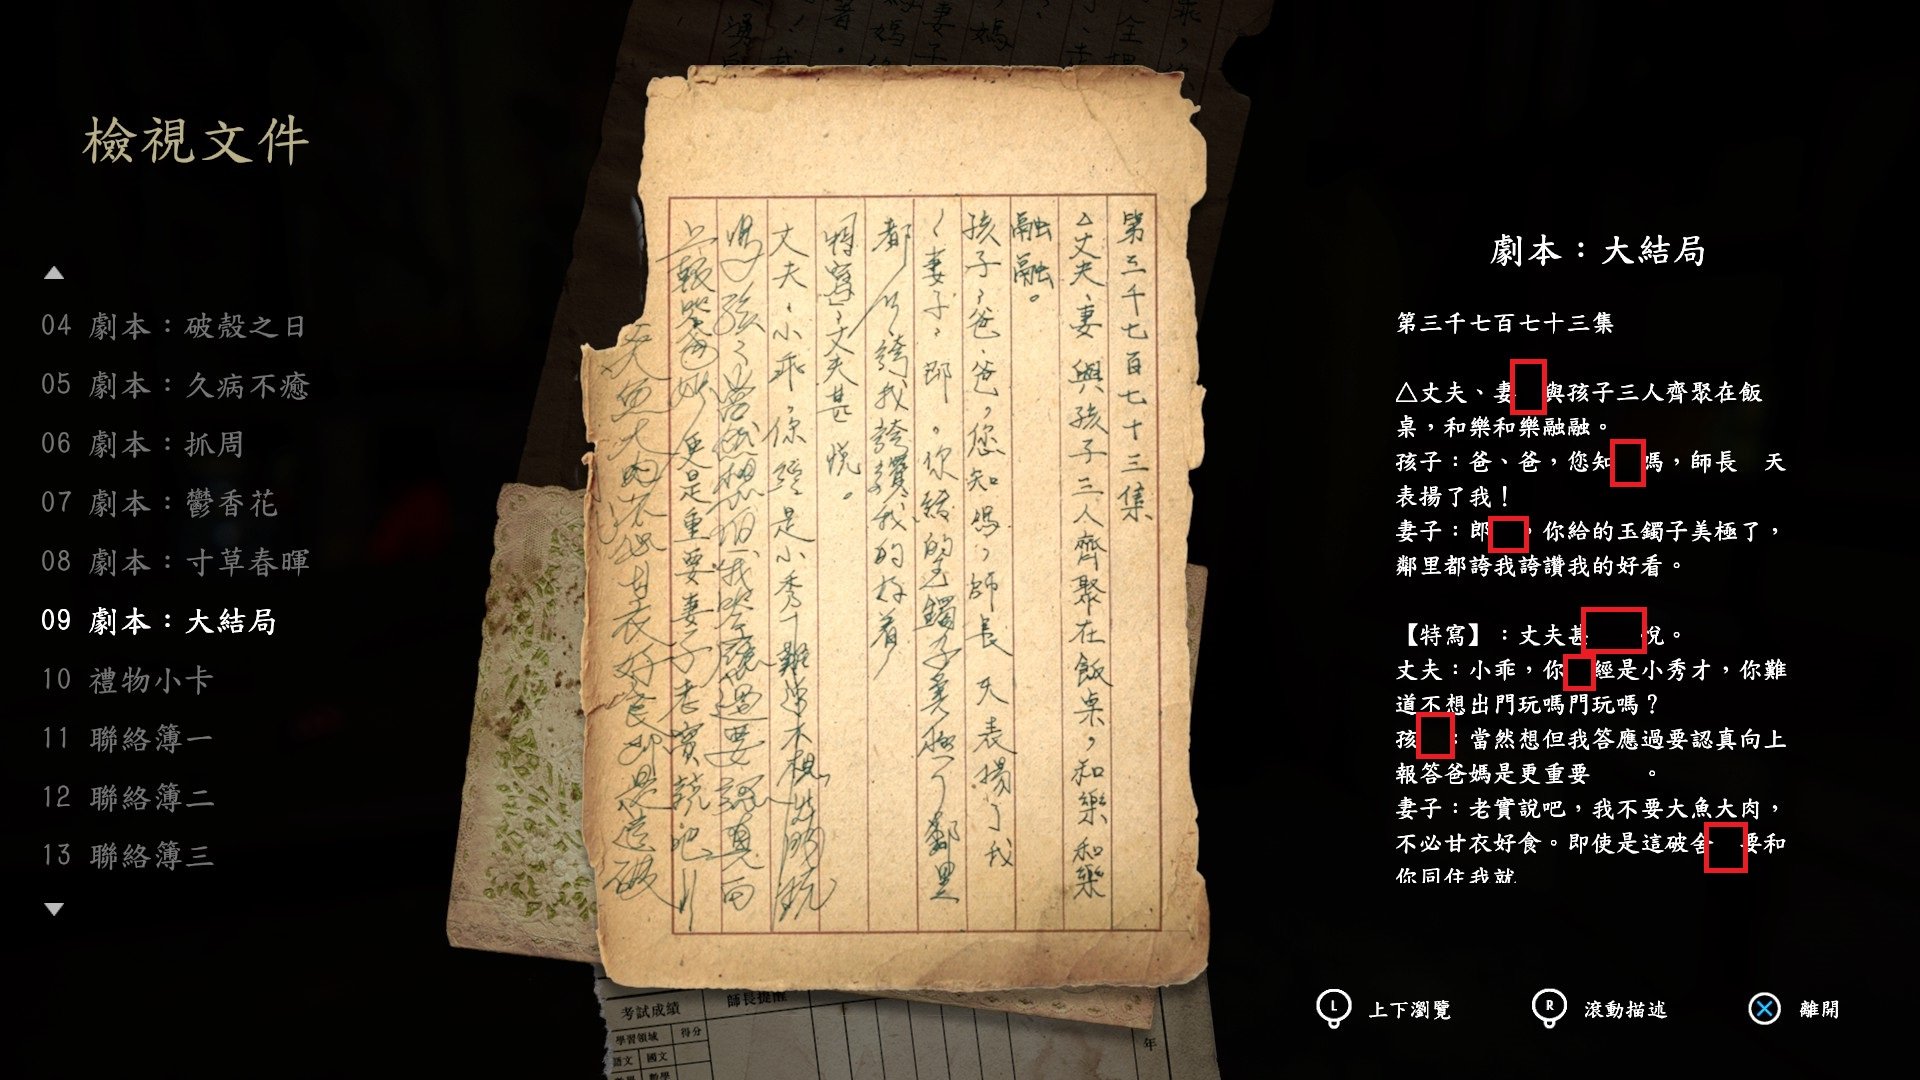 檢視文件
04 劇本：破殼之日
05 劇本：久病不癒
06 劇本：抓周
07 劇本：鬱香花
08 劇本：寸草春暉
09 劇本：大結局
10 禮物小卡
11 聯絡簿一
12 聯絡簿二
13 聯絡簿三
第三千七百七十三集
△丈夫、妻 與孩子三人齊聚在飯桌，和樂和樂
融融。
孩子：爸、爸，您知 嗎，師長 天表揚了我
妻子：郎 。你給的玉鐲子美極了鄰里
都 誇我誇讚我的好看
特寫：丈夫甚 悅。
丈夫：小乖，你 經是小秀才難道不想
考試成績
師長提醒
學習領域 得分
語文 國文
數學
年
劇本：大結局
第三千七百七十三集
△丈夫、妻 與孩子三人齊聚在飯
桌，和樂和樂融融。
孩子：爸、爸，您知 嗎，師長 天
表揚了我！
妻子：郎 ，你給的玉鐲子美極了，
鄰里都誇我誇讚我的好看。
【特寫】：丈夫甚 悅。
丈夫：小乖，你 經是小秀才，你難
道不想出門玩嗎門玩嗎？
孩 ：當然想但我答應過要認真向上
報答爸媽是更重要 。
妻子：老實說吧，我不要大魚大肉，
不必甘衣好食。即使是這破舍 要和
你同住我就
L 上下瀏覽
R 滾動描述
離開